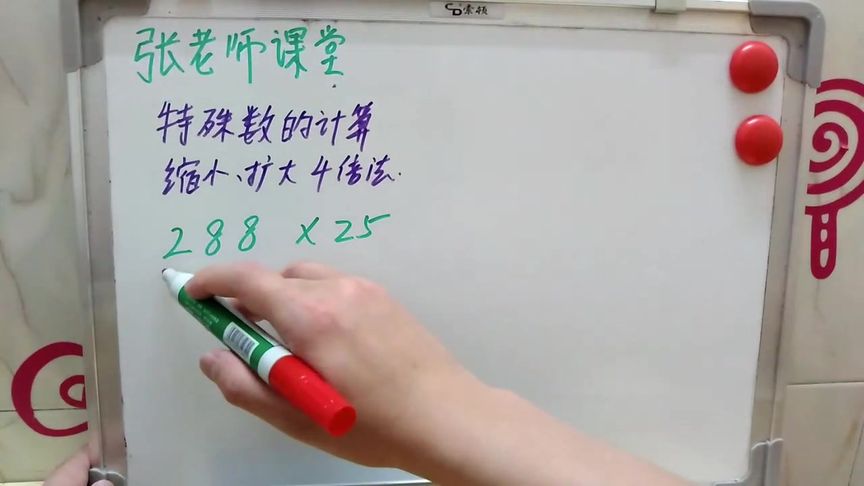 索顿
张老师课堂
特殊数的计算
缩小、扩大4倍法.
288 × 25